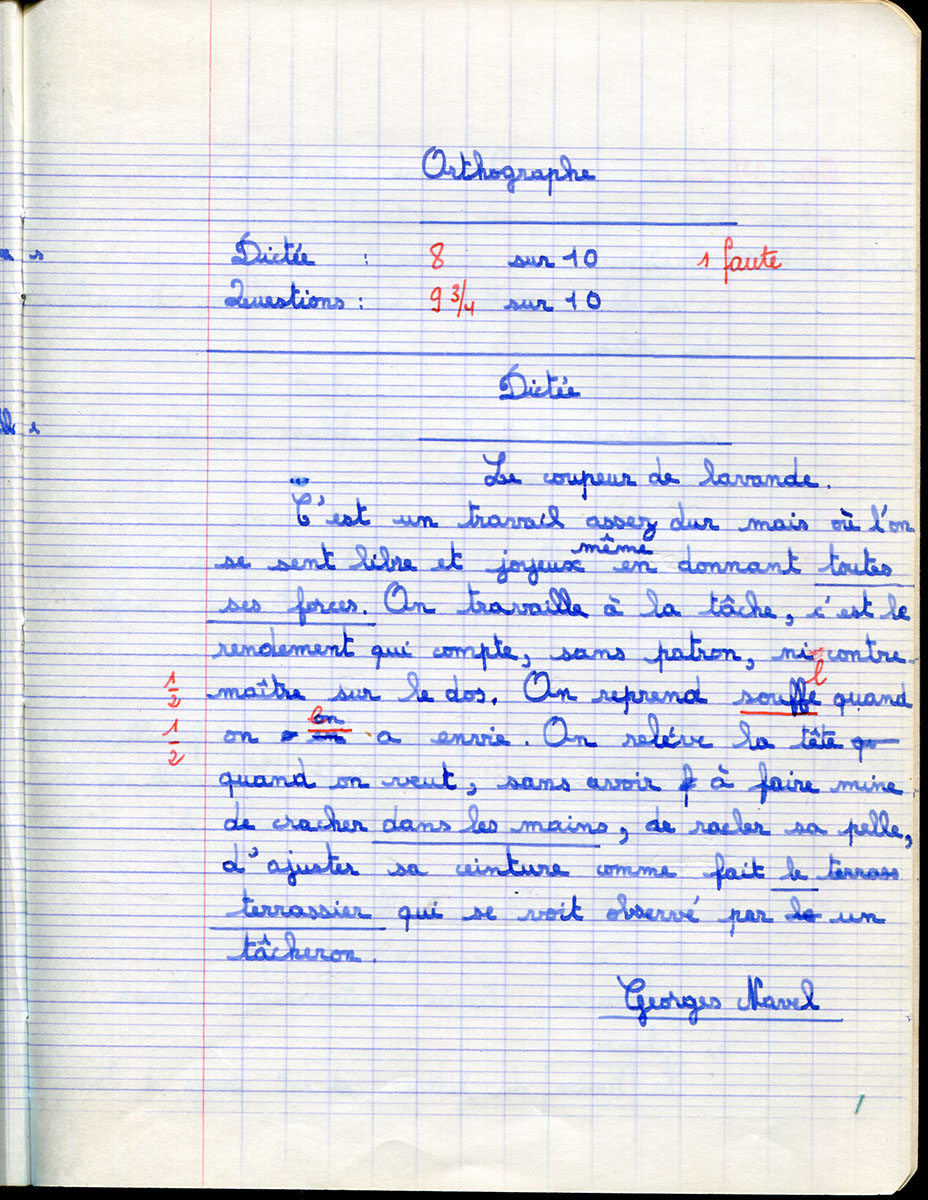 Orthographe
Dictée : 8 sur 10 1 faute
Questions : 9 3/4 sur 10
Dictée
Le coupeur de lavande.
C'est un travail assez dur mais où l'on
se sent libre et joyeux même en donnant toutes
ses forces. On travaille à la tâche, c'est le
rendement qui compte, sans patron, ni contre-
1/2 maître sur le dos. On reprend souffle quand
1/2 on en a envie. On reléve la tête qu
quand on veut, sans avoir f à faire mine
de cracher dans les mains, de racler sa pelle,
d'ajuster sa ceinture comme fait le terrass
terrassier qui se voit observé par le un
tâcheron.
Georges Navel